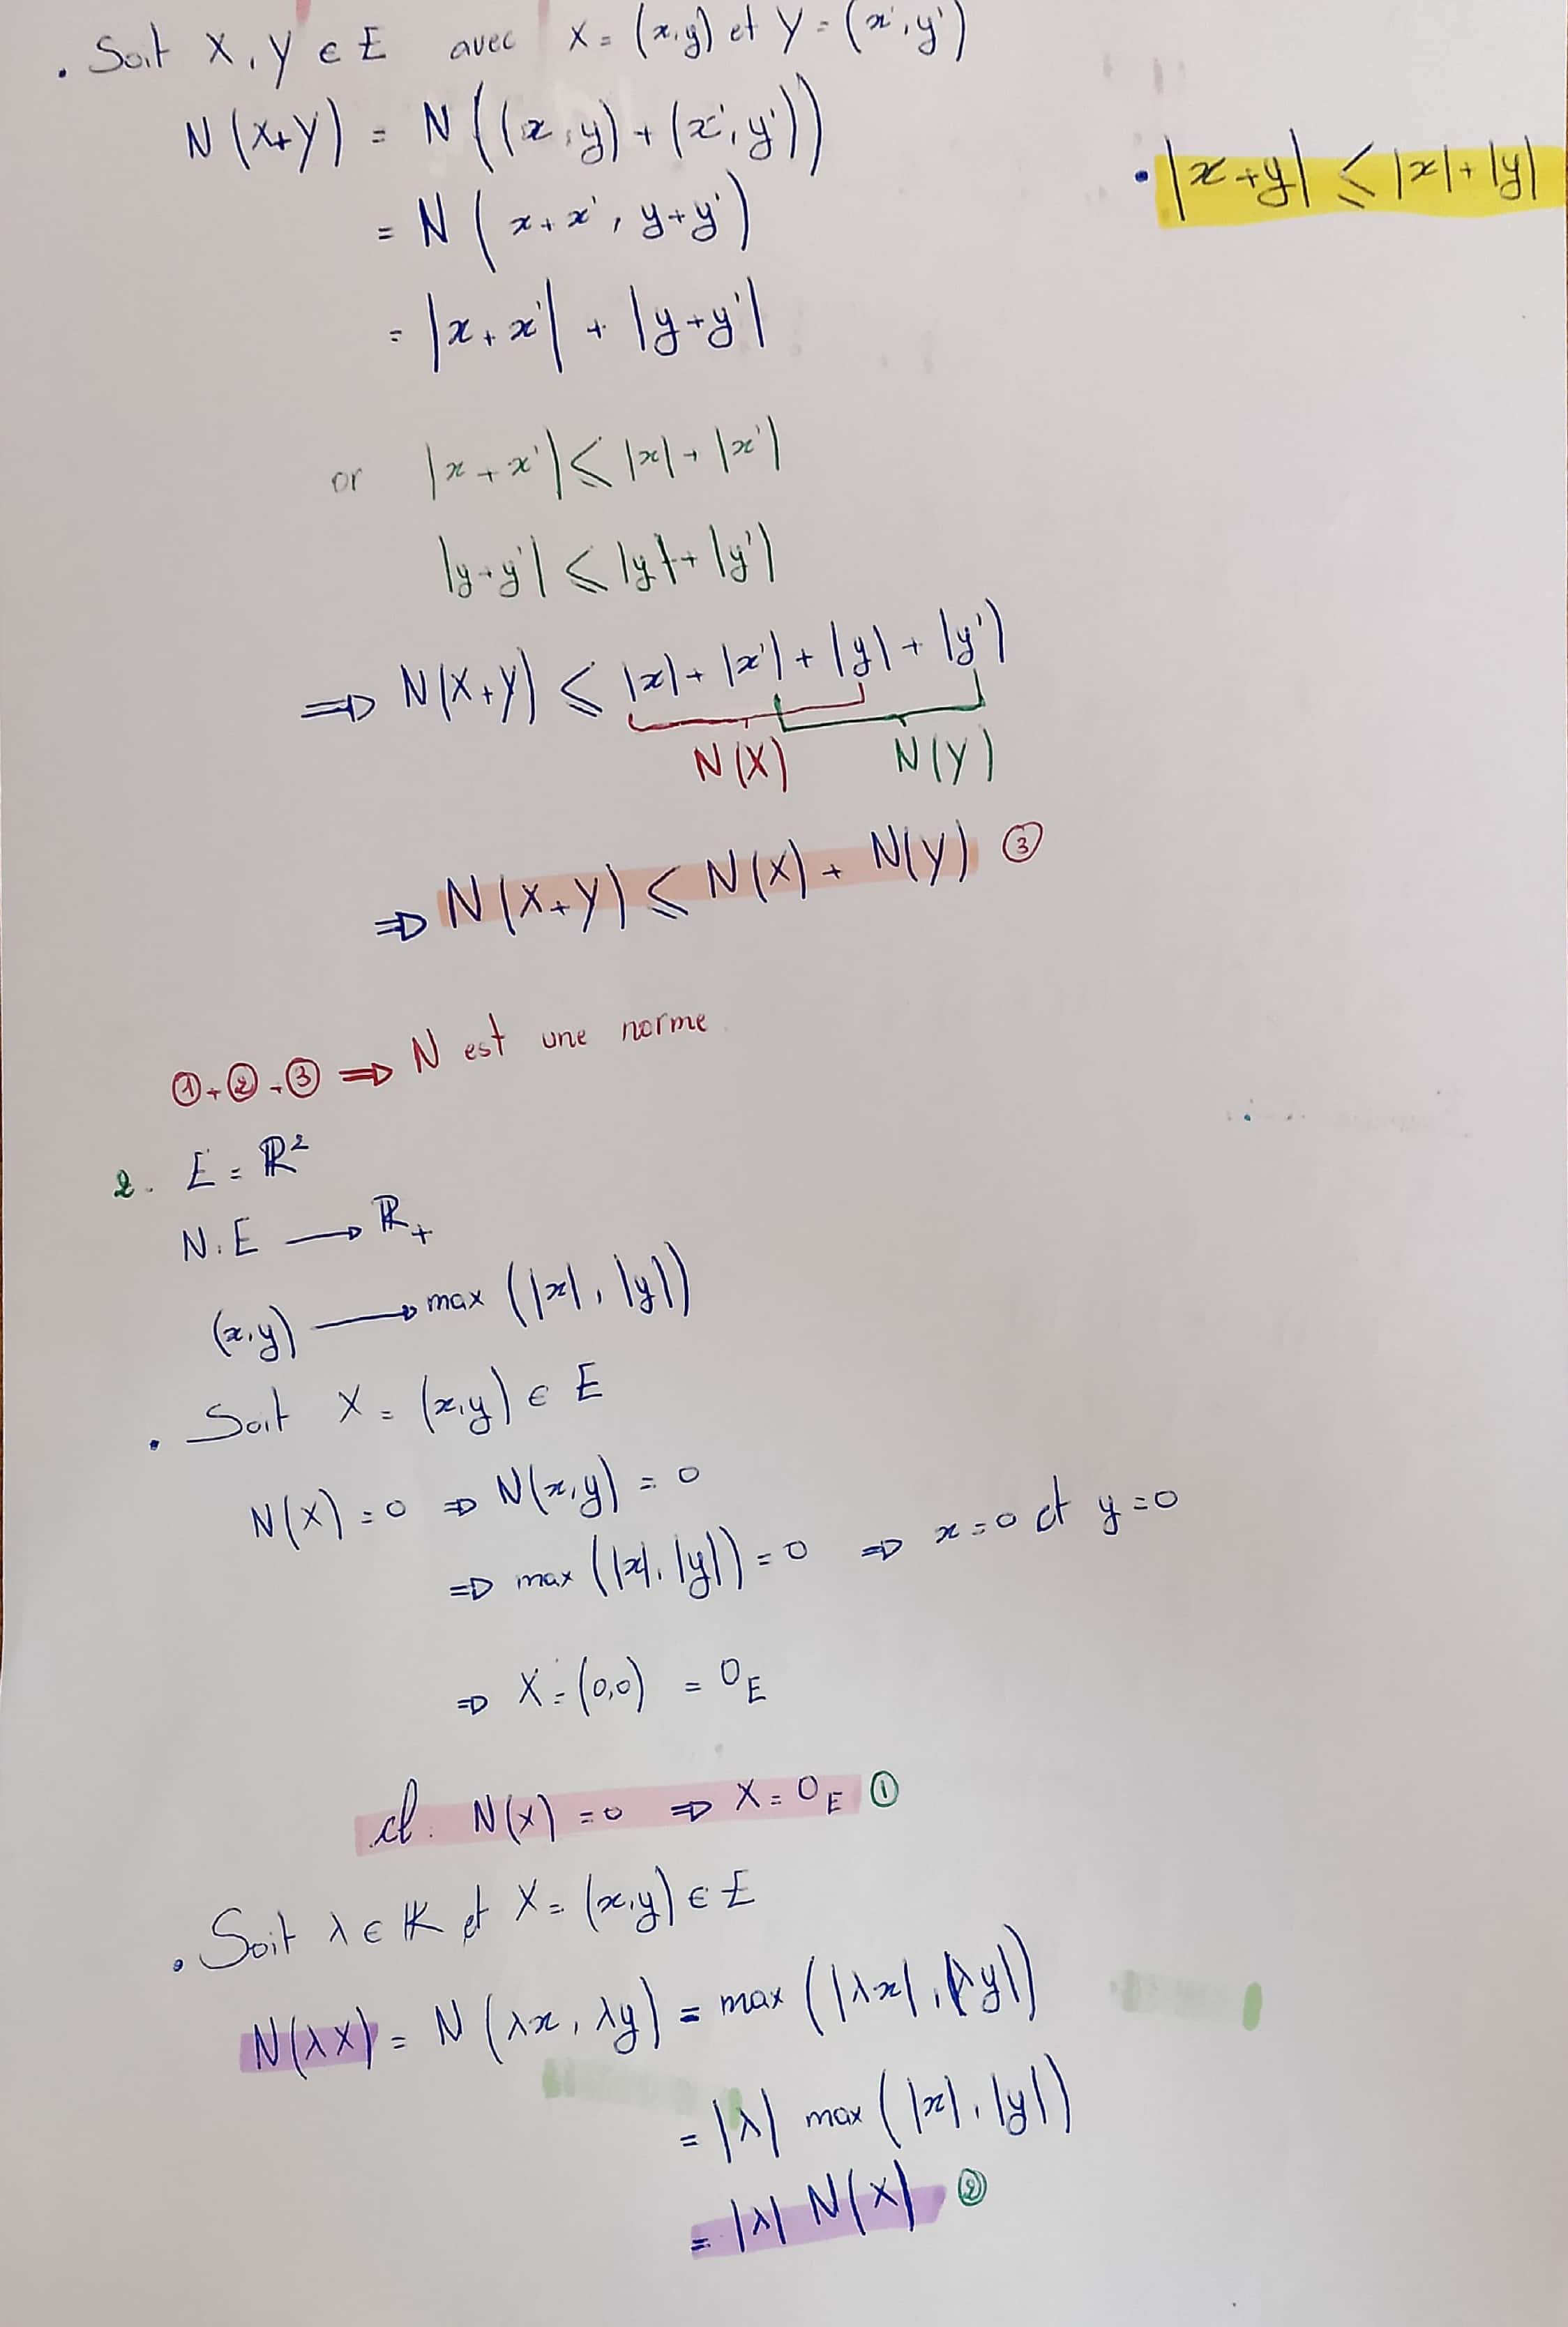 . Soit X, Y ∈ E avec X = (x,y) et Y = (x',y')
N(X+Y) = N((x,y)+(x',y'))
• |x+y| ≤ |x|+|y|
= N(x+x', y+y')
= |x+x'| + |y+y'|
or |x+x'| ≤ |x|+|x'|
|y+y'| ≤ |y|+|y'|
⇒ N(X+Y) ≤ |x|+|x'|+|y|+|y'|
N(X) N(Y)
⇒ N(X+Y) ≤ N(X)+N(Y) ③
①+②+③ ⇒ N est une norme
2. E = ℝ²
N: E → ℝ₊
(x,y) → max(|x|, |y|)
. Soit X = (x,y) ∈ E
N(X) = 0 ⇒ N(x,y) = 0
⇒ max(|x|, |y|) = 0 ⇒ x=0 et y=0
⇒ X = (0,0) = 0_E
cl: N(X) = 0 ⇒ X = 0_E ①
. Soit λ ∈ 𝕂 et X = (x,y) ∈ E
N(λX) = N(λx, λy) = max(|λx|, |λy|)
= |λ| max(|x|, |y|)
= |λ| N(X) ②